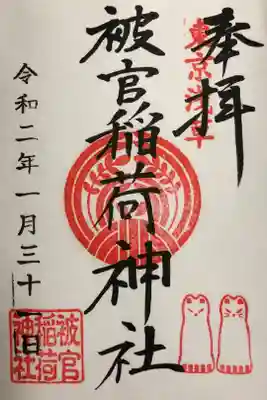 奉拝
東京浅草
被官稲荷神社
令和二年一月三十一日
被官
稲荷
神社